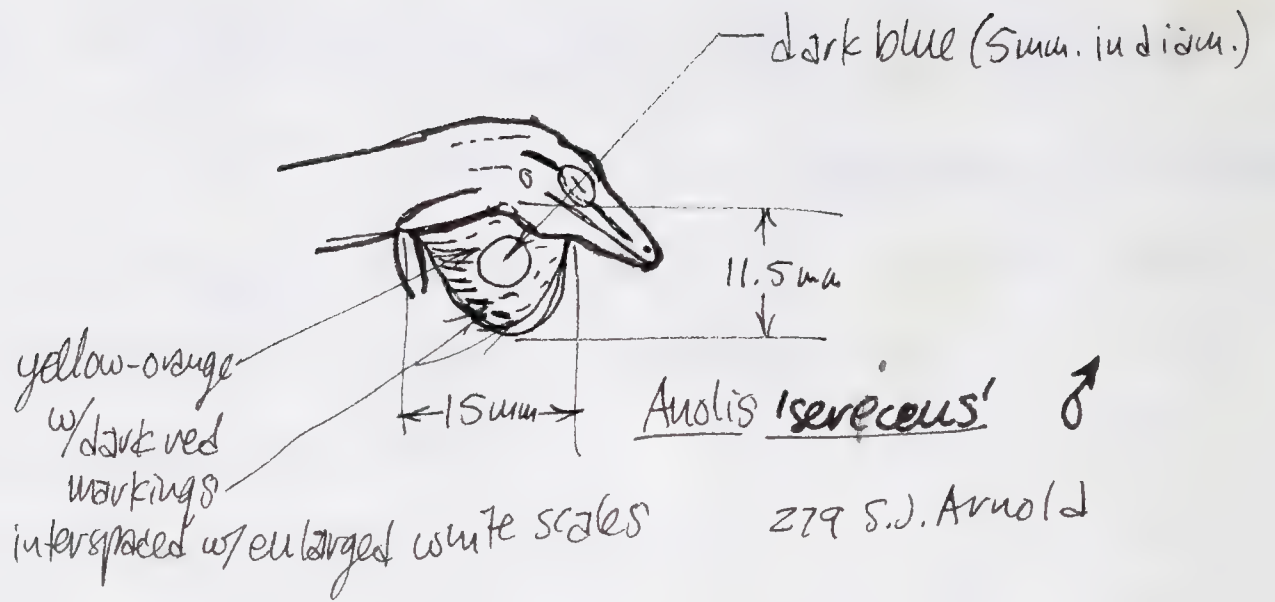 dark blue (5mm. in diam.)
11.5mm
yellow-orange
w/dark red
markings
interspaced w/ enlarged white scales
15mm
Anolis 'sereceus' ♂
279 S.J. Arnold